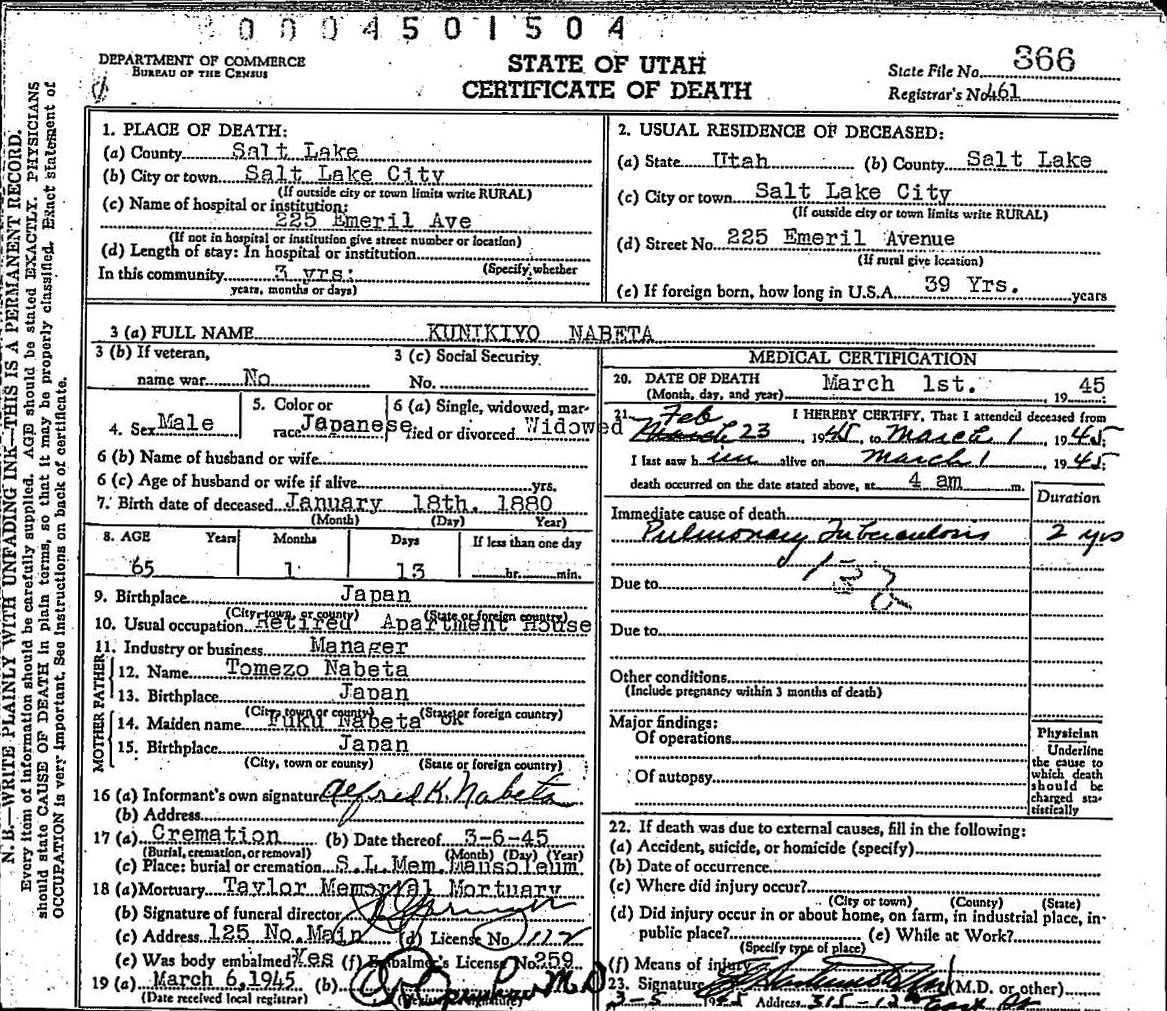 0004501504
DEPARTMENT OF COMMERCE
BUREAU OF THE CENSUS
STATE OF UTAH
CERTIFICATE OF DEATH
State File No. 366
Registrar's No. 461
N. B.—WRITE PLAINLY WITH UNFADING INK—THIS IS A PERMANENT RECORD.
Every item of information should be carefully supplied. AGE should be stated EXACTLY. PHYSICIANS
should state CAUSE OF DEATH in plain terms, so that it may be properly classified. Exact statement of
OCCUPATION is very important. See Instructions on back of certificate.
1. PLACE OF DEATH:
(a) County Salt Lake
(b) City or town Salt Lake City
(If outside city or town limits write RURAL)
(c) Name of hospital or institution:
225 Emeril Ave
(If not in hospital or institution give street number or location)
(d) Length of stay: In hospital or institution
(Specify whether
In this community 3 yrs:
years, months or days)
2. USUAL RESIDENCE OF DECEASED:
(a) State Utah (b) County Salt Lake
(c) City or town Salt Lake City
(If outside city or town limits write RURAL)
(d) Street No. 225 Emeril Avenue
(If rural give location)
(e) If foreign born, how long in U.S.A. 39 Yrs. years
3 (a) FULL NAME KUNIKIYO NABETA
3 (b) If veteran, 3 (c) Social Security
name war No No.
4. Sex Male 5. Color or race Japanese 6 (a) Single, widowed, married or divorced Widowed
6 (b) Name of husband or wife
6 (c) Age of husband or wife if alive yrs.
7. Birth date of deceased January 18th. 1880
(Month) (Day) Year)
8. AGE Years Months Days If less than one day
65 1 13 hr. min.
9. Birthplace Japan
(City town, or county) (State or foreign country)
10. Usual occupation Retired Apartment House
11. Industry or business Manager
FATHER
12. Name Tomezo Nabeta
13. Birthplace Japan
(City town or county) (State or foreign country)
MOTHER
14. Maiden name Fuku Nabeta ok
15. Birthplace Japan
(City, town or county) (State or foreign country)
16 (a) Informant's own signature Alfred K. Nabeta
(b) Address
17 (a) Cremation (b) Date thereof 3-6-45
(Burial, cremation, or removal) (Month) (Day) (Year)
(c) Place: burial or cremation S.L.Mem.Mausoleum
18 (a) Mortuary Taylor Memorial Mortuary
(b) Signature of funeral director
(c) Address 125 No.Main (d) License No. 112
(e) Was body embalmed? Yes (f) Embalmer's License No. 259
19 (a) March 6,1945 (b) M.D
(Date received local registrar)
MEDICAL CERTIFICATION
20. DATE OF DEATH March 1st. 1945
(Month, day, and year)
21. I HEREBY CERTIFY, That I attended deceased from
Feb
March 23, 1945, to March 1, 1945;
I last saw him alive on March 1 1945;
death occurred on the date stated above, at 4 am m.
Duration
Immediate cause of death
Pulmonary Tuberculosis 2 yrs
Due to
Due to
Other conditions
(Include pregnancy within 3 months of death)
Major findings:
Of operations
Of autopsy
Physician
Underline
the cause to
which death
should be
charged statistically
22. If death was due to external causes, fill in the following:
(a) Accident, suicide, or homicide (specify)
(b) Date of occurrence
(c) Where did injury occur?
(City or town) (County) (State)
(d) Did injury occur in or about home, on farm, in industrial place, in
public place? (e) While at Work?
(Specify type of place)
(f) Means of injury
23. Signature (M.D. or other)
3-5 1945 Address 315-12